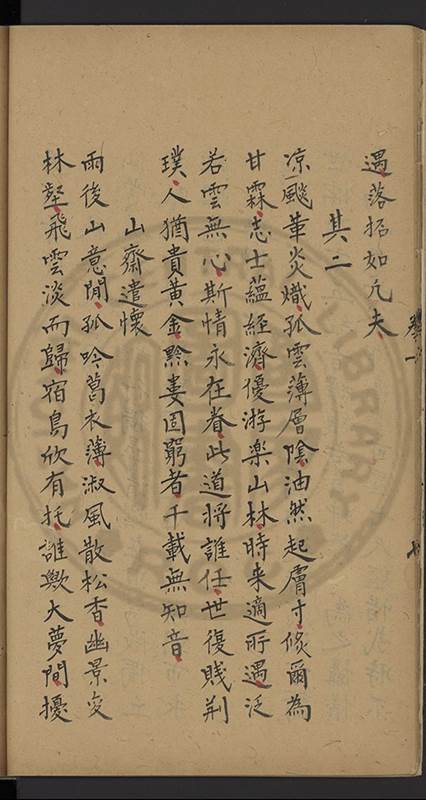 遇落招如凡夫
其二
凉飈革炎熾孤雲薄層陰油然起膚寸倐爾為
甘霖志士蘊經濟優游樂山林時来適所遇泛
若雲無心斯情永在眷此道將誰任世復賤荆
璞人猶貴黃金黔婁固窮者千載無知音
山齋遣懷
雨後山意閒孤吟葛衣薄淑風散松香幽景变
林壑飛雲淡而歸宿鳥欣有托誰歟大夢間擾